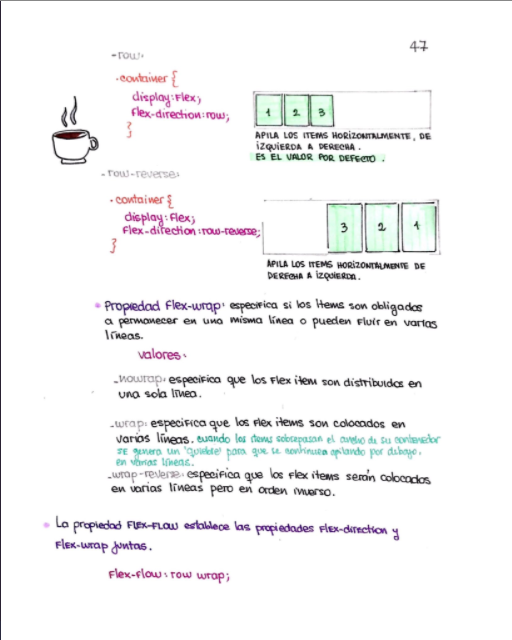 47
-row:
.container {
display:Flex;
Flex-direction:row;
}
1 2 3
APILA LOS ITEMS HORIZONTALMENTE, DE
IZQUIERDA A DERECHA.
ES EL VALOR POR DEFECTO.
-row-reverse:
.container {
display:Flex;
Flex-direction:row-reverse;
}
3 2 1
APILA LOS ITEMS HORIZONTALMENTE DE
DERECHA A IZQUIERDA.
• Propiedad Flex-wrap: especifica si los ítems son obligados
a permanecer en una misma línea o pueden fluir en varias
líneas.
valores:
_nowrap: especifica que los Flex item son distribuidos en
una sola línea.
_wrap: especifica que los Flex items son colocados en
varias líneas. cuando los items sobrepasan el ancho de su contenedor
se genera un "quiebre" para que se continuen apilando por debajo.
en varias líneas.
_wrap-reverse: especifica que los Flex items serán colocados
en varias líneas pero en orden inverso.
• La propiedad FLEX-FLOW establece las propiedades Flex-direction y
Flex-wrap juntas.
Flex-Flow: row wrap;